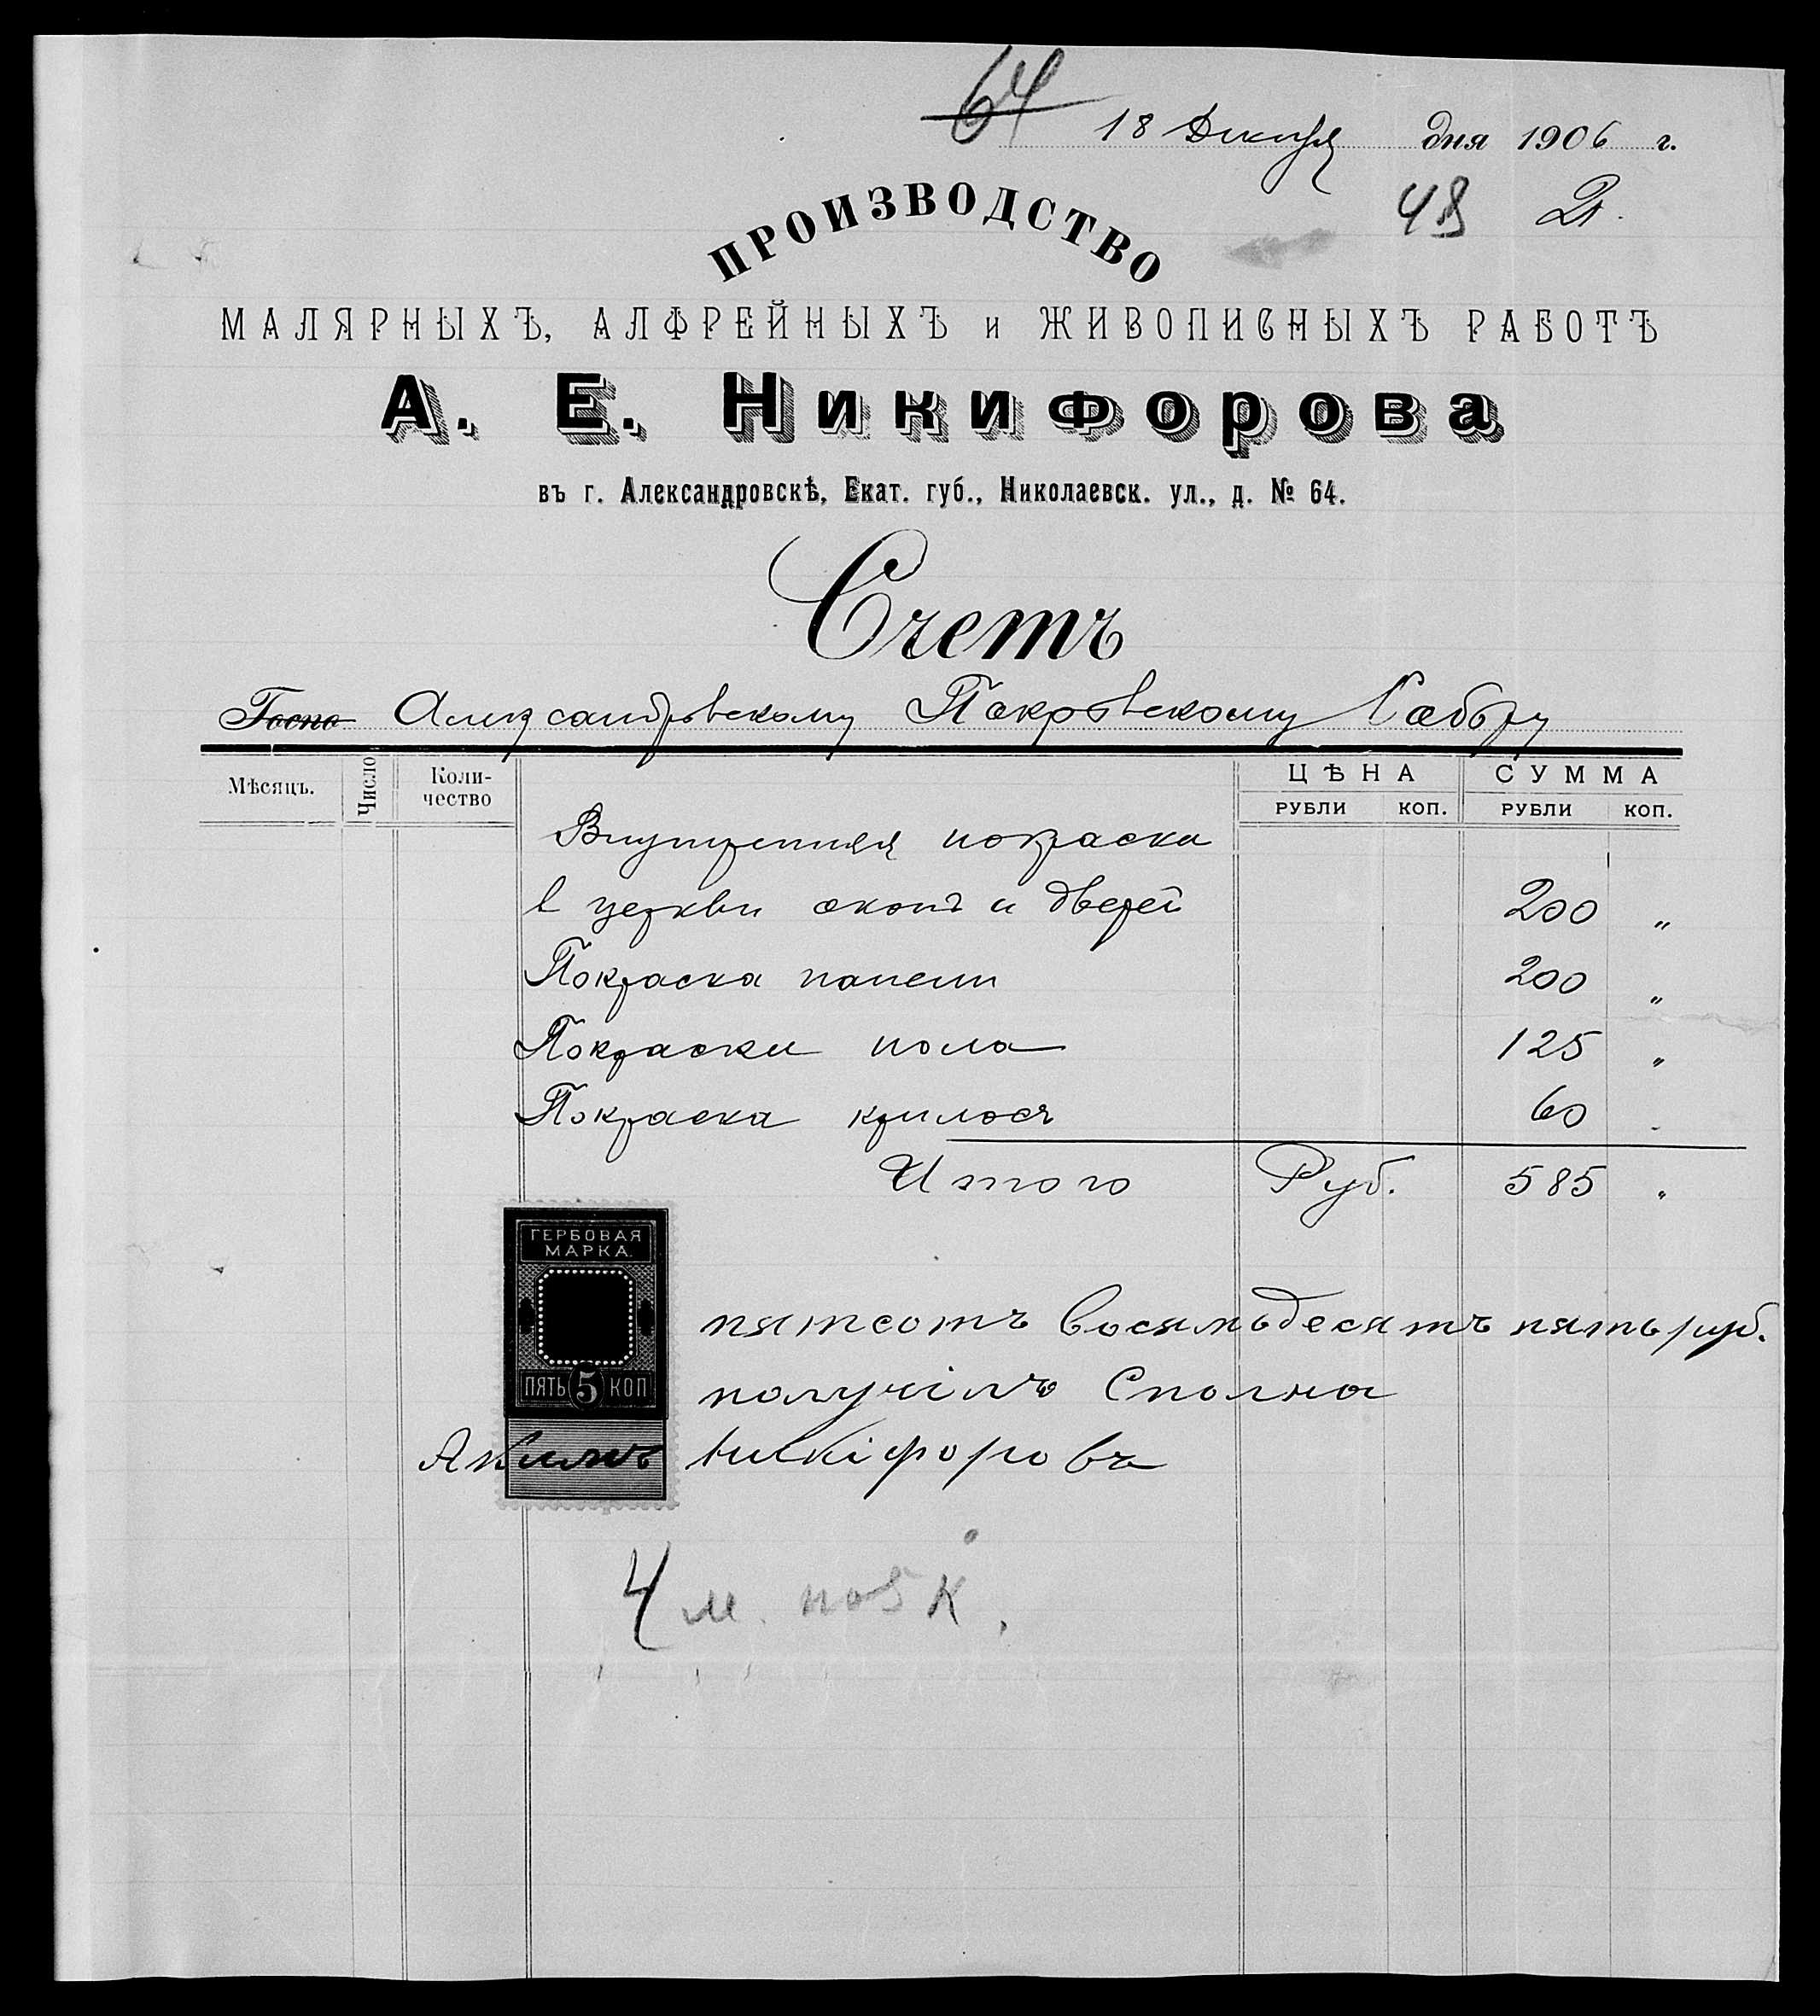 64
18 Декабря дня 1906 г.
48
ПРОИЗВОДСТВО
МАЛЯРНЫХЪ, АЛФРЕЙНЫХЪ и ЖИВОПИСНЫХЪ РАБОТЪ
А. Е. Никифорова
въ г. Александровскѣ, Екат. губ., Николаевск. ул., д. № 64.
Счетъ
Госпо Александровскому Покровскому Собору
Мѣсяцъ. Число Коли-чество ЦѢНА РУБЛИ КОП. СУММА РУБЛИ КОП.
Внутренняя покраска
в церкви оконъ и дверей 200 "
Покраска панели 200 "
Покраски пола 125 "
Покраска крилосъ 60 -
Итого Руб. 585 "
ГЕРБОВАЯ
МАРКА.
ПЯТЬ 5 КОП
пятсотъ восямьдесятъ пять руб.
получілъ Сполна
Акимъ Никіфоровъ
4 м.